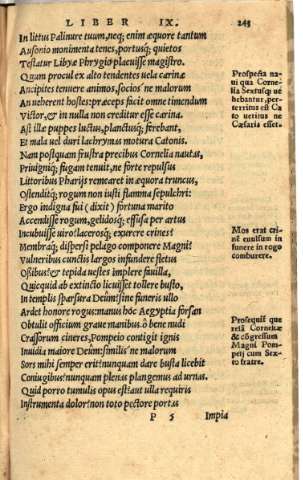 LIBER IX. 245
In littus Palinure tuum, neq; enim æquore tantum
Ausonio monimenta tenes, portusq; quietos
Testatur Libyæ Phrygio placuisse magistro.
Quam procul ex alto tendentes uela carinæ
Ancipites tenuere animos, socios ne malorum
An ueherent hostes: præceps facit omne timendum
Victor, & in nulla non creditur esse carina.
Ast illæ puppes luctus, planctusq; ferebant,
Et mala uel duri lachrymas motura Catonis.
Nam postquam frustra precibus Cornelia nautas,
Priuigniq; fugam tenuit, ne forte repulsus
Littoribus Pharijs remearet in æquora truncus,
Ostenditq; rogum non iusti flamma sepulchri:
Ergo indigna fui (dixit) fortuna marito
Accendisse rogum, gelidosq; effusa per artus
Incubuisse uiro? laceros q; exurere crines?
Membraq; dispersi pelago componere Magni?
Vulneribus cunctis largos infundere fletus?
Ossibus? & tepida uestes implere fauilla,
Quicquid ab extincto licuisset tollere busto,
In templis sparsura Deum? sine funeris ullo
Ardet honore rogus: manus hoc Aegyptia forsan
Obtulit officium graue manibus. ô bene nudi
Crassorum cineres, Pompeio contigit ignis
Inuidia maiore Deum: similis ne malorum
Sors mihi semper erit? nunquam dare busta licebit
Coniugibus? nunquam plenas plangemus ad urnas.
Quid porro tumulis opus est? aut ulla requiris
Instrumenta dolor? non toto pectore portas
P 5 Impia
Prospecta na-
ui qua Corne-
lia Sextusq́ue ue
hebantur, per-
territus est Ca
to ueritus ne
Cæsaris esset.
Mos erat cri-
nẽ cæsum in
funere in rogo
comburere.
Prosequit̃ que
relã Corneliæ
& cõgressum
Magni Pom-
peij cum Sex-
to fratre.